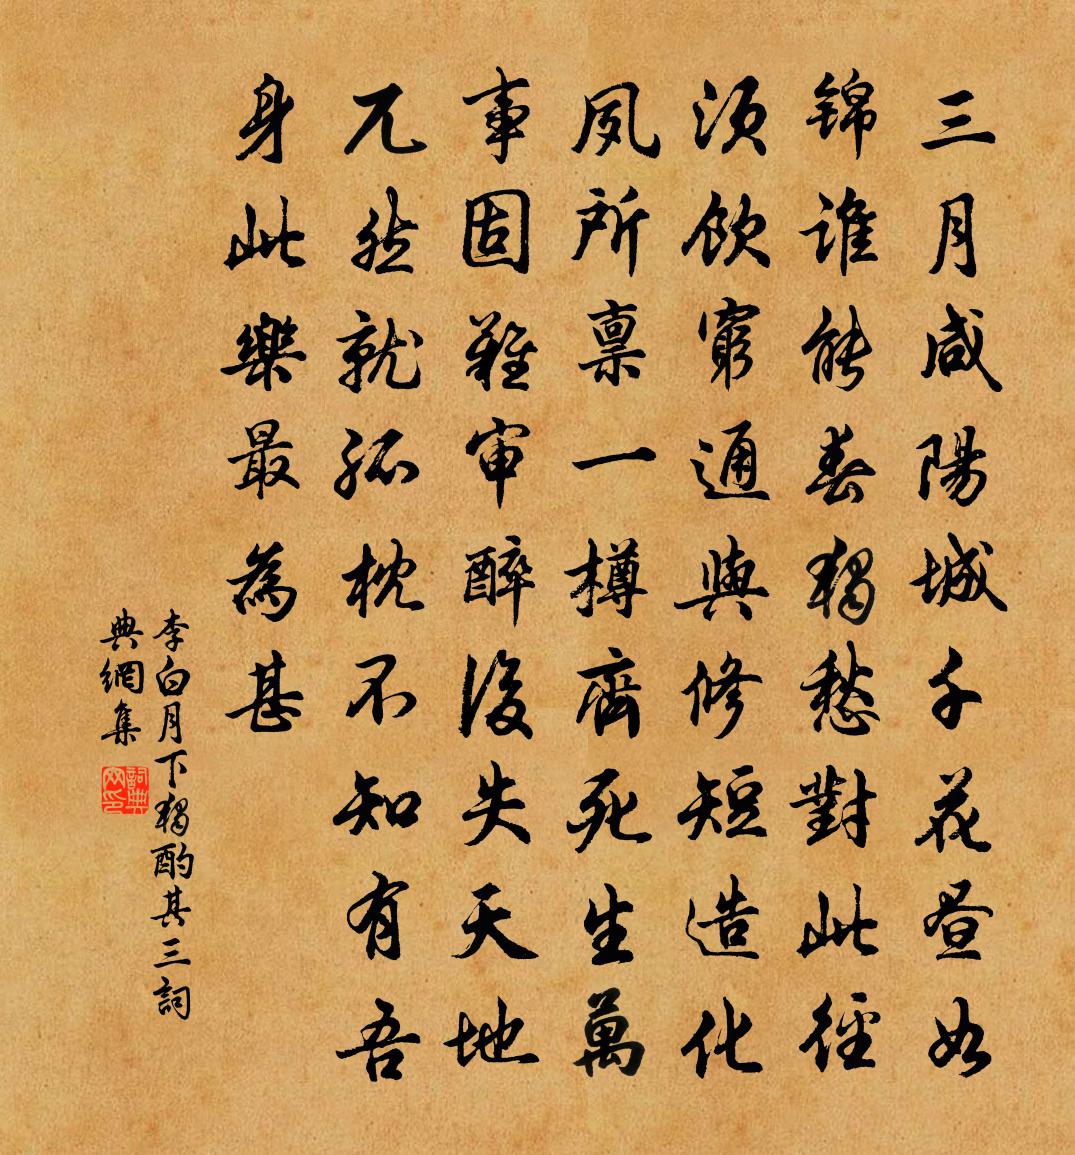 三月咸陽城千花晝如
錦誰能春獨愁對此徑
須飲窮通與修短造化
夙所禀一樽齊死生萬
事固難審醉後失天地
兀然就孤枕不知有吾
身此樂最為甚
李白月下獨酌其三詞
典網集
詞典
网印